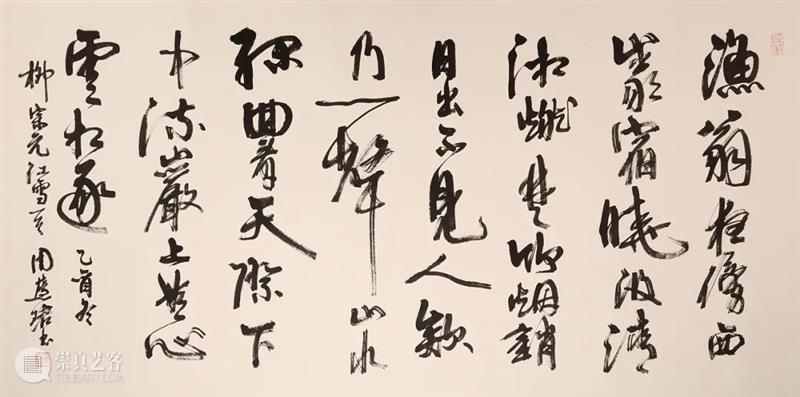 漁翁夜傍西
巖宿曉汲清
湘燃楚竹烟銷
日出不見人欸
乃一聲山水
綠回看天際下
中流巖上無心
雲相逐
柳宗元江雪
乙酉冬
周慧珺書
崇真艺客
TRUEART.COM